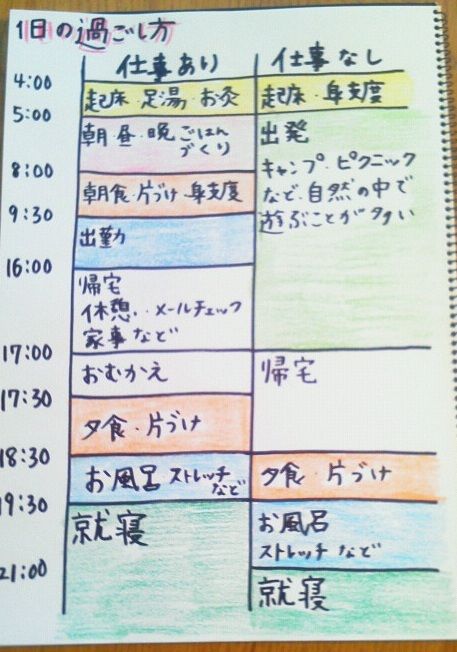 1日の過ごし方
仕事あり 仕事なし
4:00 起床・足湯・お灸 起床・身支度
5:00 朝・昼・晩ごはん 出発
づくり キャンプ・ピクニック
8:00 朝食・片づけ・身支度 など・自然の中で
9:30 出勤 遊ぶことが多い
16:00 帰宅
休憩・・メールチェック
家事など
17:00 おむかえ 帰宅
17:30 夕食・片づけ
18:30 お風呂 ストレッチ 夕食・片づけ
など
19:30 就寝 お風呂
ストレッチ など
21:00 就寝